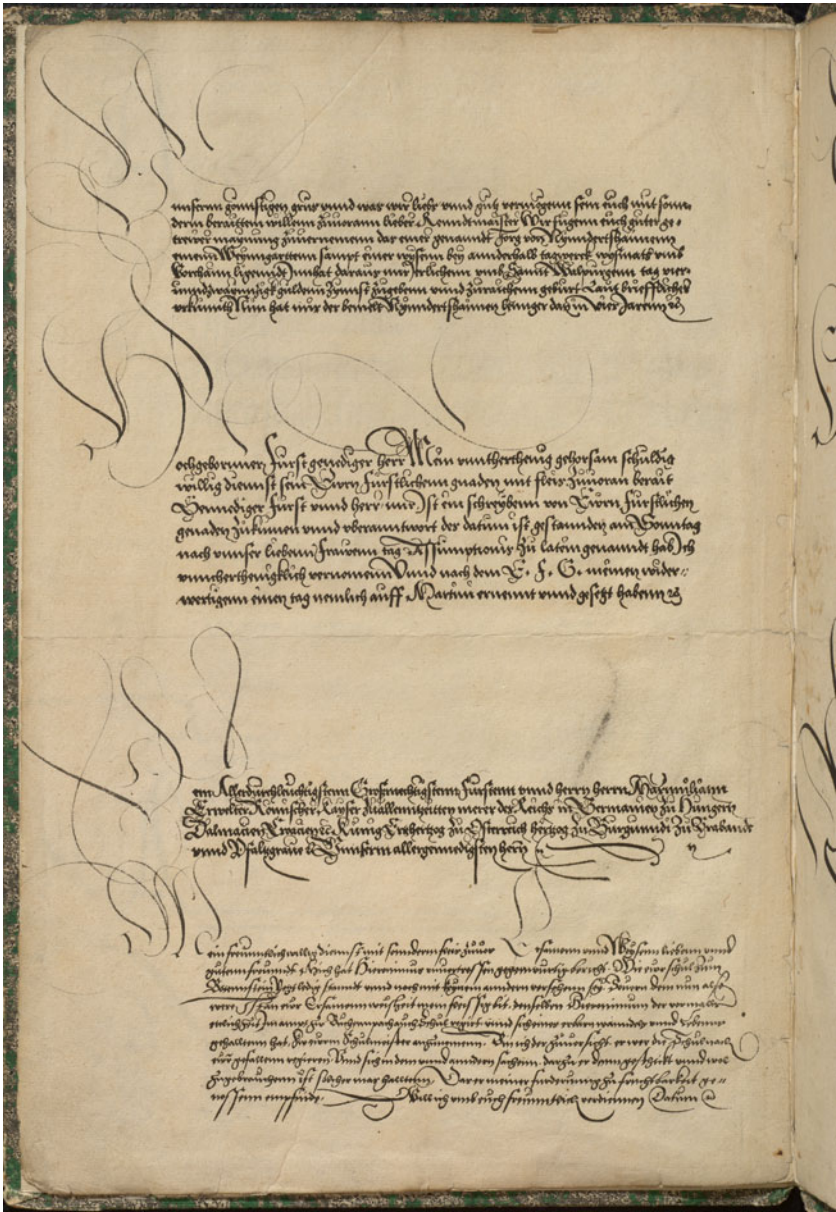 Vnnsern gonnstigen grus vnnd was wir liebs vnnd guts vermugenn sein euch mit sonn-
dern beraittem willenn zuuorann lieber Renndtmaister Wir fugenn euch guter ge-
trewer maynung zuuernemenn das einer genanndt Jorg von Myndertshannenn
einenn Weynngarttenn sampt einer wysenn bey annderhalb tagwerck wysmats vnns
ligenndt Innhat daraus mir Jerlichenn vnnb Sannt Walpurgenn tag vier-
vnndzwaynntzigk guldenn Zynnst zugebenn vnnd zuraichenn geburt Laut briefflicher
vrkunnth Nun hat mir der bemelt Myndertshannen keiniger das in vier Jarenn
Hochgebornner Furst genediger herr Mein vnnthertheinig gehorsam schuldig
willig diennst sein Ewrn Furstlichenn gnaden mit fleis zuuoran berait
Gennediger Furst vnnd herr mir Ist ein schreybenn von Ewrn Furstlichen
genaden zukumen vnnd vberanntwort der datum ist gestannden am Sonntag
nach vnnser liebenn Frawenn tag Assumptionis zu latein genanndt hab Ich
vnnthertheinigklich vernomenn Vnnd nach dem E. F. G. meinen wider-
wertigenn einen tag nemlich auff Martini ernennt vnnd gesetzt habenn
Dem Allerdurchleuchtigstenn Großmechtigstenn Furstenn vnnd herrn herrn Maxymiliann
Erwelter Romischer Kayser zuallenntzeitten merer des Reichs in Germanien zu Hungern
Dalmacien Croacien Kunig Ertzhertzog zu Osterreich hertzog zu Burgunndi zu Brabandt
vnnd Pfaltzgraue Vnnserm allergenedigsten hern
Mein freunntlich willig diennst mit sonnderm fleis zuuor Ersamenn vnnd Weysenn liebenn vnnd
gutenn freunndt Mich hat Hieronimus gegenwurtig bericht Wie ewr schul zum
ledig stanndt vnnd noch mit keynem anndern versehenn sey Dieweil dem nun also
were Ist an ewr Ersamenn weisheit mein fleissig bit denselben Hieronimum der vormals
etlich zeit auch schul regirt vnnd sich einer erbern wanndels vnnd lebenns
gehaltenn hat fur ewrenn Schulmeister anzunemenn Bin ich der zuuersicht er wer die Schul nach
ewrm gefallenn regieren Vnnd sich in dem vnnd anndern sachenn darzu er dann geschickt vnnd wol
zugebrauchenn ist halltenn Das er meiner furderung fruchtbarkeit ge-
nossenn empfinde Will ich vmb euch freunntlich verdiennen Datum